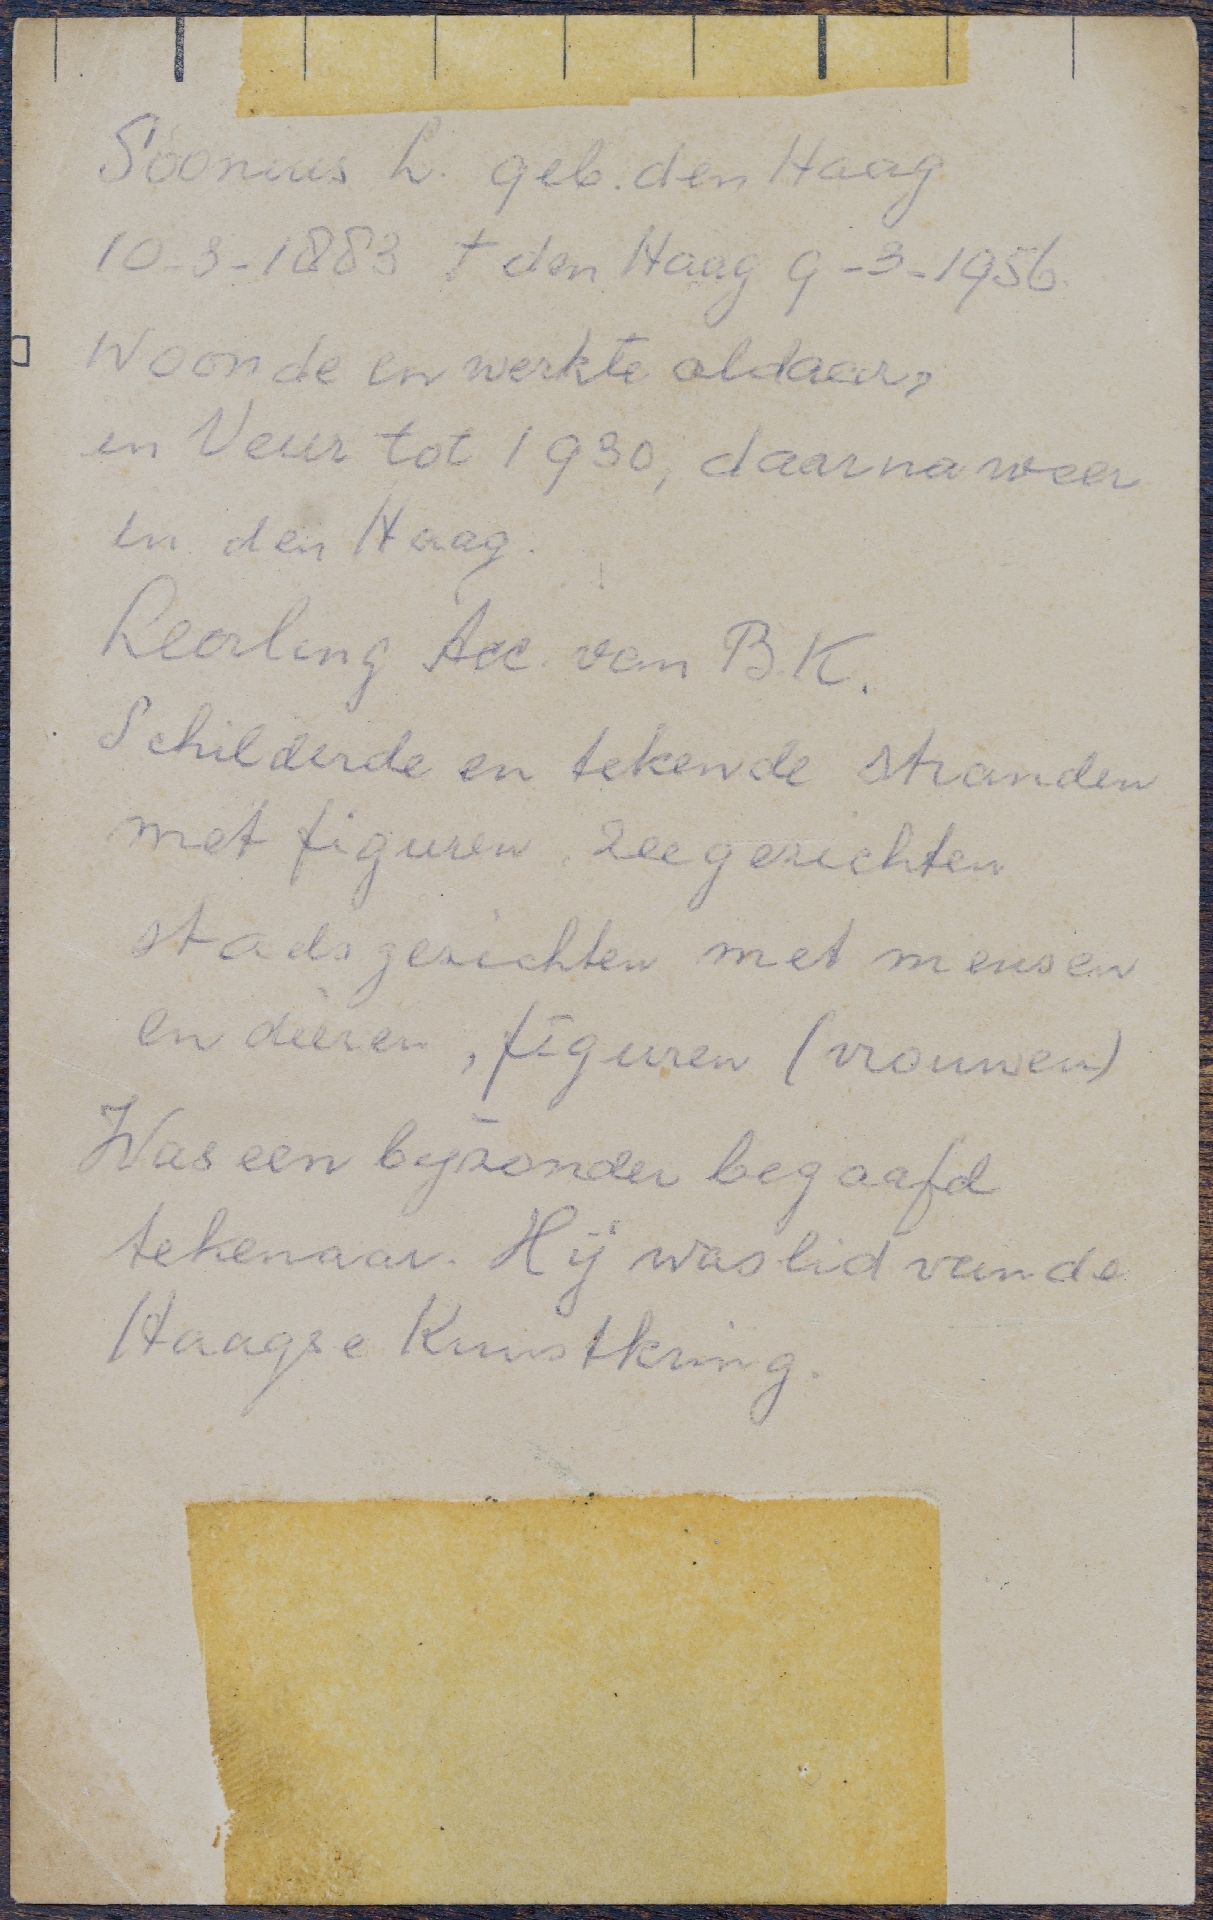 Soonius L. geb. den Haag
10-3-1883 † den Haag 9-3-1956.
Woonde en werkte aldaar,
in Veur tot 1930, daarna weer
in den Haag.
Leerling Acc. van B.K.
Schilderde en tekende stranden
met figuren, zeegezichten
stadsgezichten met mensen
en dieren, figuren (vrouwen)
Was een bijzonder begaafd
tekenaar. Hij was lid van de
Haagse Kunstkring.